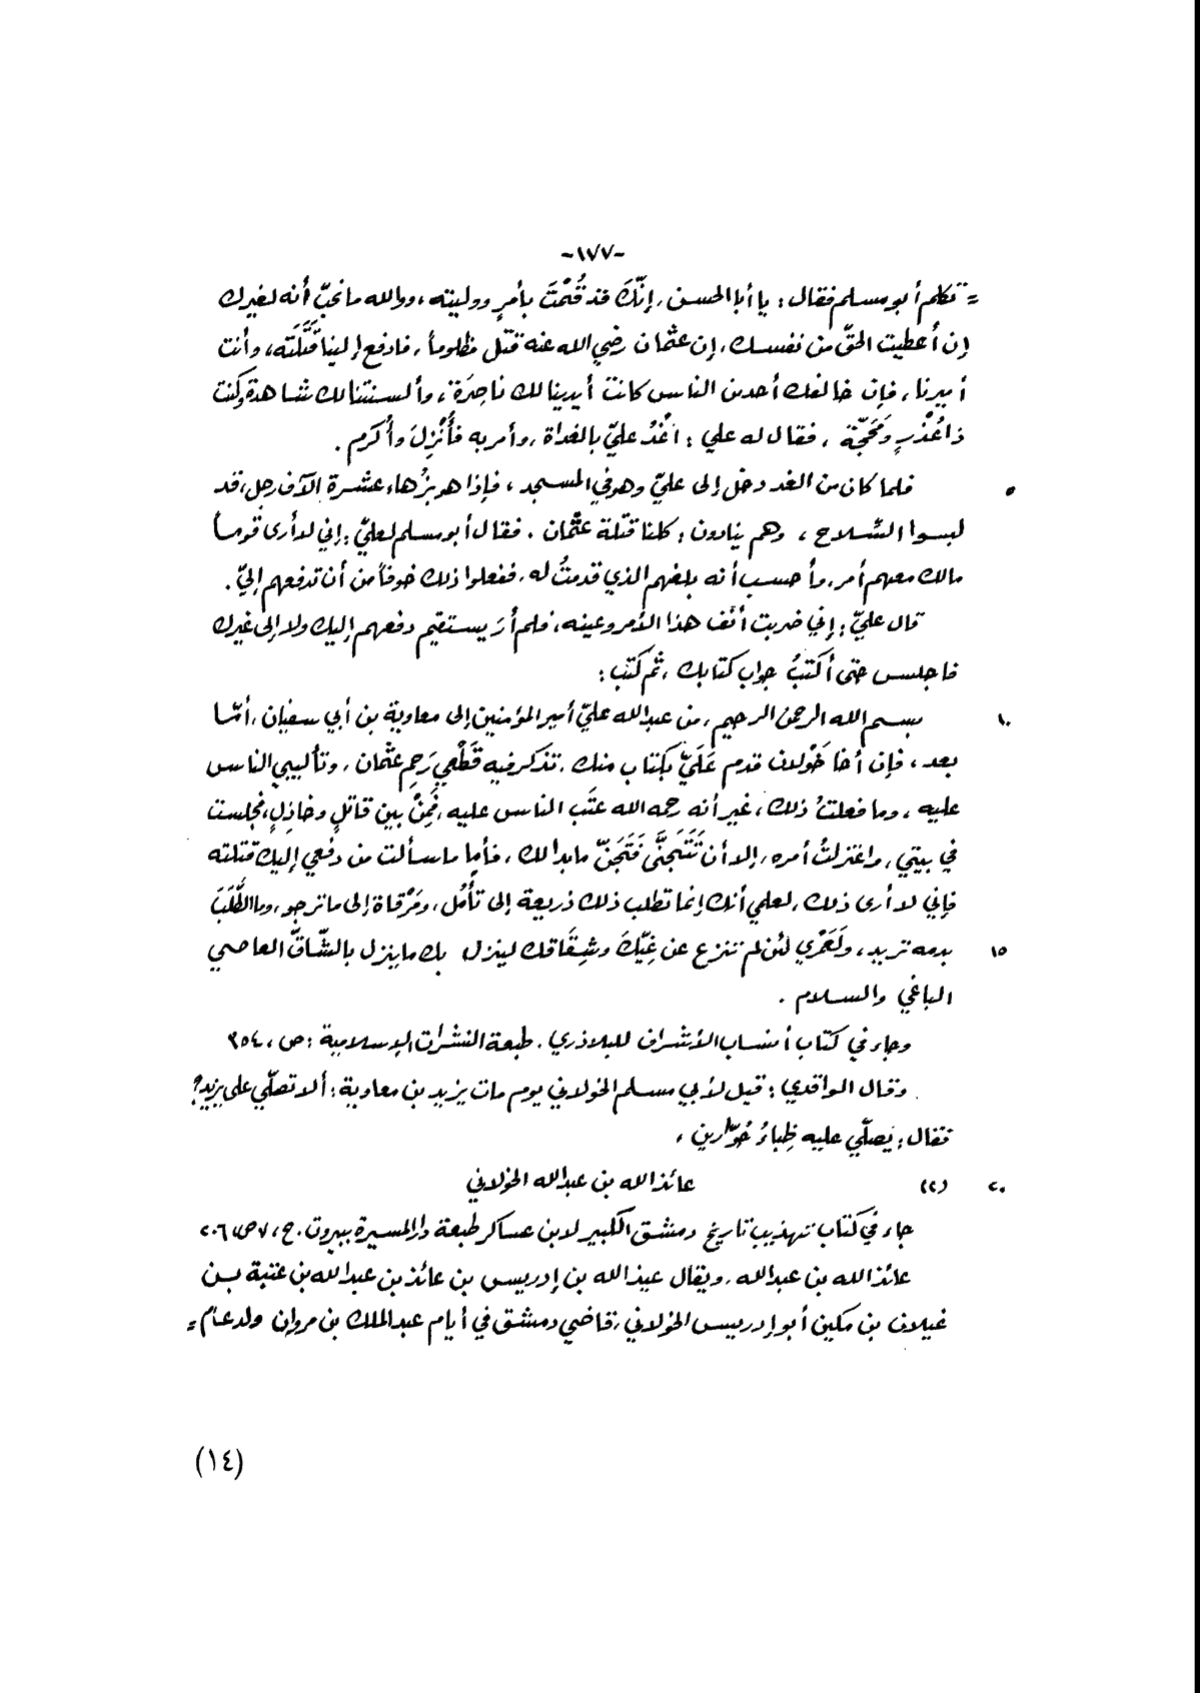 -١٧٧-
= تكلم أبو مسلم فقال : يا أبا الحسن ، إنّكَ قد قُمْتَ بأمرٍ ووليته ، ووالله ما نحبّ أنه لغيرك
إن أعطيت الحقّ من نفسك ، إن عثمان رضي الله عنه قتل مظلوماً ، فادفع إلينا قَتَلَته ، وأنت
أميرنا ، فإن خالفك أحد من الناس كانت أيدينا لك ناصِرَة ، وألسنتنا لك شاهدة وكنت
ذا عُذْرٍ وحُجّة ، فقال له علي : اغْدُ عليّ بالغداة ، وأمر به فأُنْزِلَ وأُكرم .
٥ فلما كان من الغد دخل إلى عليّ وهو في المسجد ، فإذا هو بزُهاء عشرة الآف رجل ، قد
لبسوا السّلاح ، وهم ينادون : كلنا قَتَلة عثمان . فقال أبو مسلم لعليّ : إني لأرى قوماً
مالك معهم أمر ، وأحسب أنه بلغهم الذي قدمتُ له ، ففعلوا ذلك خوفاً من أن تدفعهم إليّ .
قال عليّ : إني ضربت أنف هذا الأمر وعينه ، فلم أرَ يستقيم دفعهم إليك ولا إلى غيرك
فاجلس حتى أكتبُ جواب كتابك ، ثم كتب :
١٠ بسم الله الرحمن الرحيم ، من عبدالله عليّ أمير المؤمنين إلى معاوية بن أبي سفيان ، أمّا
بعد ، فإن أخا خَوْلان قدم عَلَيَّ بكتاب منك ، تذكر فيه قَطْعي رَحِم عثمان ، وتأليبي الناس
عليه ، وما فعلتُ ذلك ، غير أنه رحمه الله عتَب الناس عليه ، فَمِنْ بين قاتلٍ وخاذِلٍ ، فجلست
في بيتي ، واعتزلتُ أمره ، إلا أن تَتَجنَّى فَتَجَنّ ما بدا لك ، فأما ما سألت من دفعي إليك قتلته
فإني لا أرى ذلك ، لعلمي أنك إنما تطلب ذلك ذريعة إلى تأمُل ، ومَرْقاة إلى ما ترجو ، وما الطَّلَبَ
١٥ بدمه تريد ، ولَعَمْري لئن لم تنزع عن غِيّكَ وشِقَاقك لينزل بك ما ينزل بالشّاقّ العاصي
الباغي والسلام .
وجاء في كتاب أنساب الأشراف للبلاذري . طبعة النشرات الإسلامية : ص ، ٣٥٤
وقال الواقدي : قيل لأبي مسلم الخولاني يوم مات يزيد بن معاوية : ألا تصلّي على يزيد؟
فقال : يصلّي عليه ظِباءُ حُوّارين ،
٢٠ (٢) عائذ الله بن عبدالله الخولاني
جاء في كتاب تهذيب تاريخ دمشق الكبير لابن عساكر طبعة دار المسيرة ببيروت . ج ، ٧ ص ٢٠٦
عائذ الله بن عبدالله ، ويقال عيذ الله بن إدريس بن عائذ بن عبدالله بن عتبة بن
غيلان بن مكين أبو إدريس الخولاني ، قاضي دمشق في أيام عبدالملك بن مروان ولد عام =
(١٤)